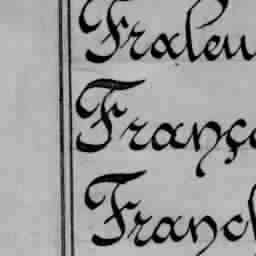 Fraleu
França
Franch